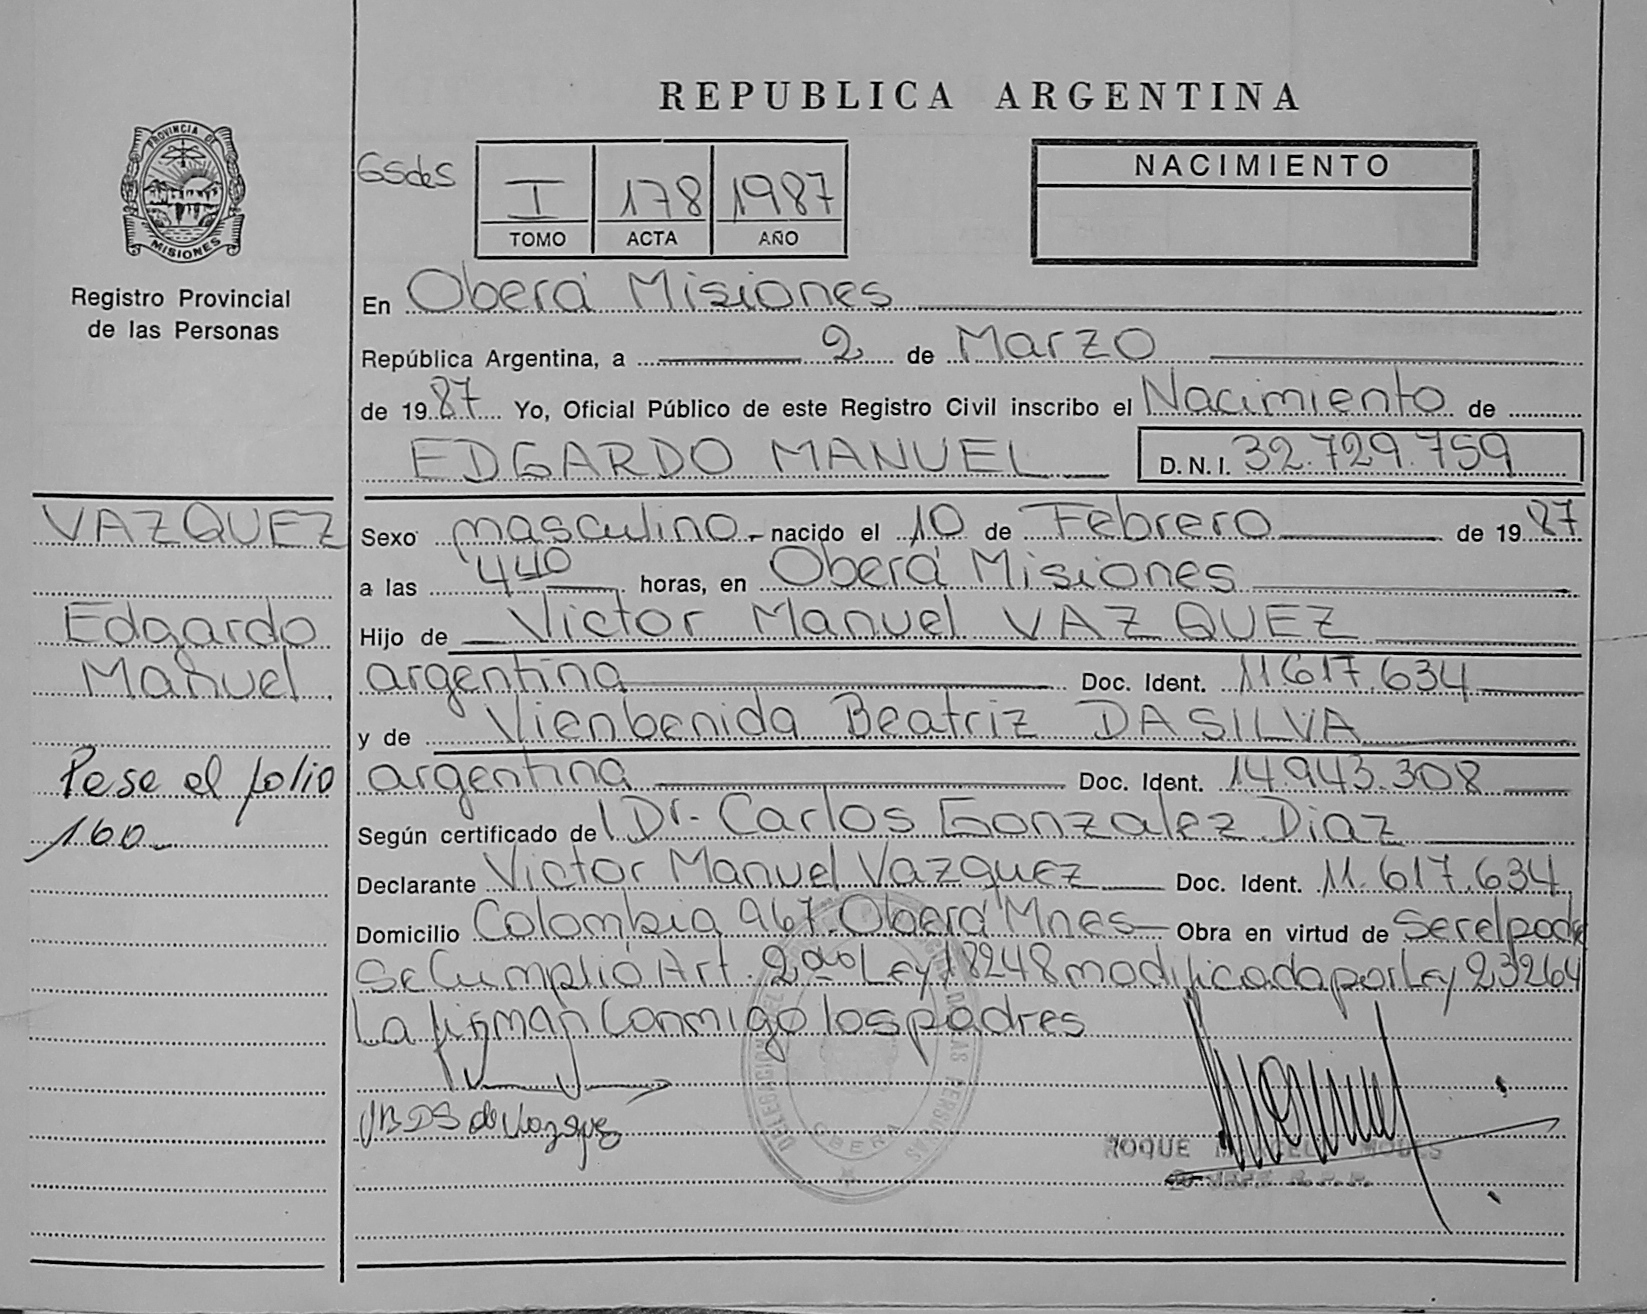 REPUBLICA ARGENTINA
PROVINCIA DE
MISIONES
Registro Provincial
de las Personas
Gsdes
I 178 1987
TOMO ACTA AÑO
NACIMIENTO
En Oberá Misiones
República Argentina, a 2 de Marzo
de 1987 Yo, Oficial Público de este Registro Civil inscribo el Nacimiento de
EDGARDO MANUEL D. N. I. 32.729.759
VAZQUEZ
Edgardo
Manuel
Pase el folio
160
Sexo masculino nacido el 10 de Febrero de 1987
a las 440 horas, en Oberá Misiones
Hijo de Victor Manuel VAZQUEZ
argentina Doc. Ident. 11617.634
y de Vienbenida Beatriz DASILVA
argentina Doc. Ident. 14.943.308
Según certificado de Dr. Carlos Gonzalez Diaz
Declarante Victor Manuel Vazquez Doc. Ident. 11.617.634
Domicilio Colombia 967. Oberá Mnes Obra en virtud de Ser el pade
Se Cumplió Art. 2do Ley 18248 modificada por Ley 23264
La firman Conmigo los padres
DELEGACION DE LAS PERSONAS
OBERA
VBDS de Vazquez
ROQUE
JEFE R.P.P.